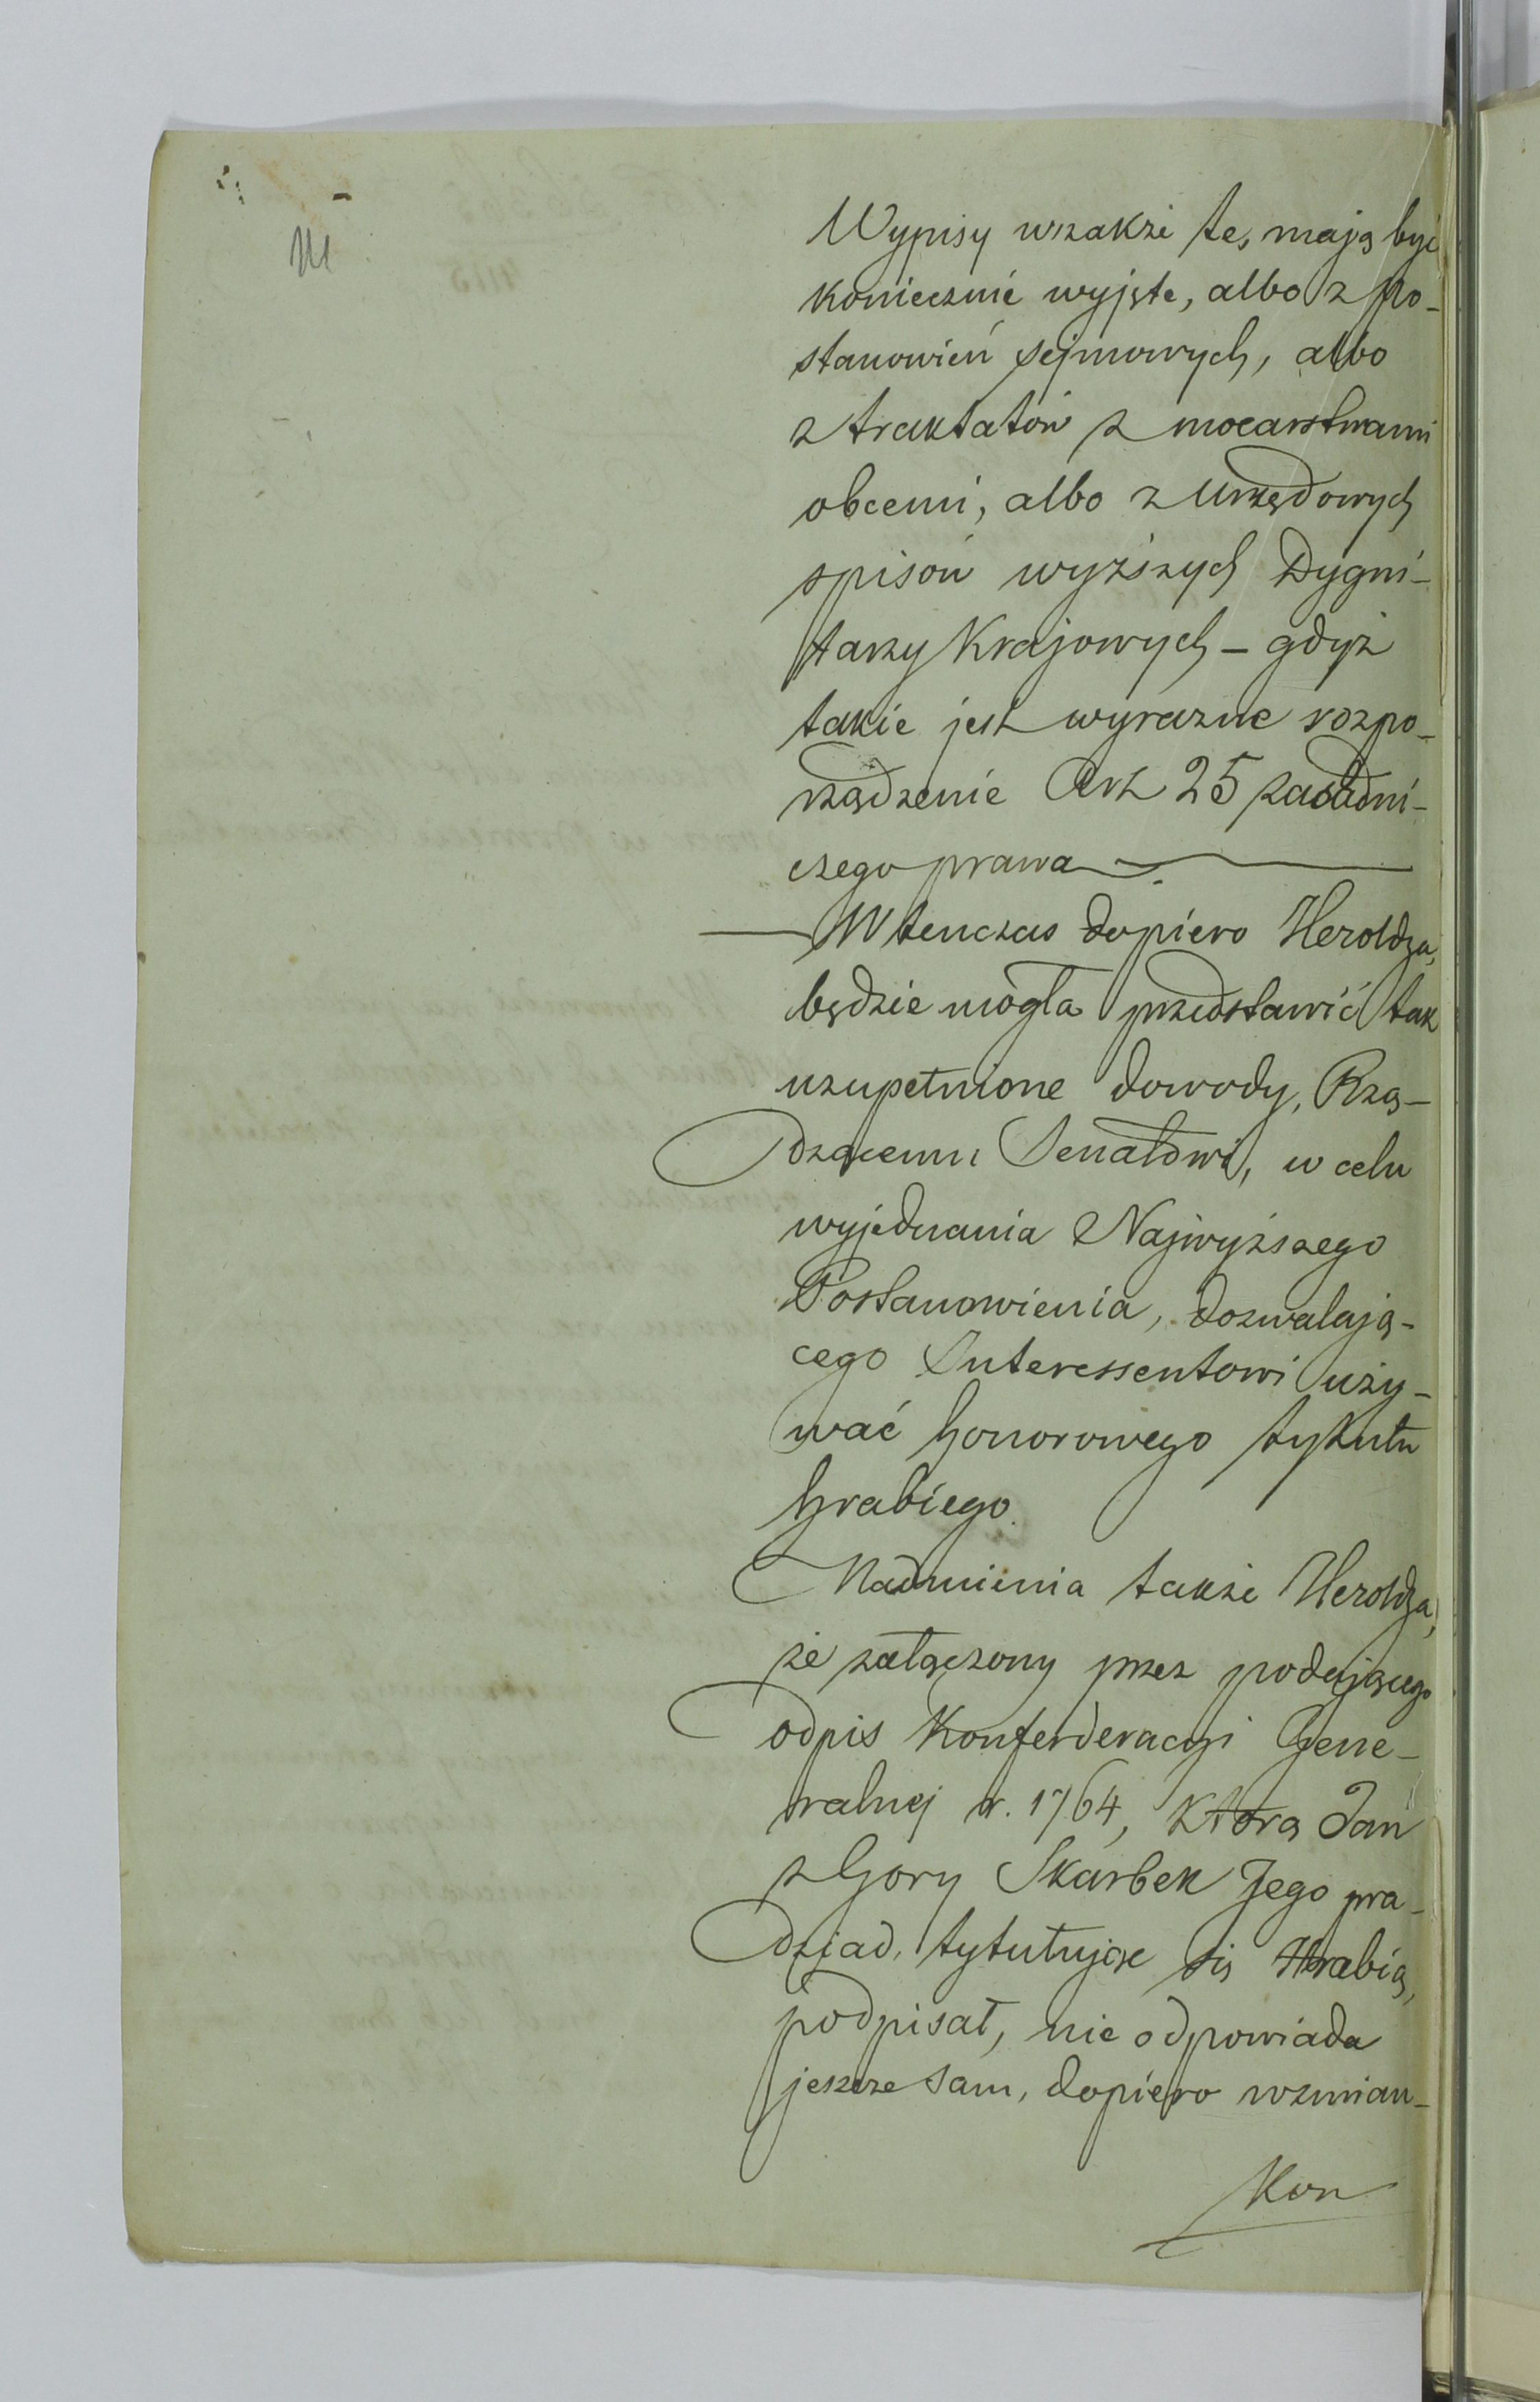 Wypisy wszakże te, mają być
koniecznie wyjęte, albo z po-
stanowień sejmowych, albo
z traktatów z mocarstwami
obcemi, albo z Urzędowych
spisów wyższych Dygni-
tarzy Krajowych – gdyż
takie jest wyrazne rozpo-
rządzenie Art 25 zasadni-
czego prawa
Wtenczas dopiero Heroldja,
będzie mogła przedstawić tak
uzupełnione dowody, Rzą-
dzącemu Senatowi, w celu
wyjednania Najwyższego
Postanowienia, dozwalają-
cego Interessentowi uży-
wać honorowego tytułu
hrabiego.
Nadmienia także Heroldja,
że załączony przez podającego
odpis Konferderacyi Gene-
ralnej r. 1764, którą Jan
z Gory Skarbek Jego pra-
dziad, tytułując się Hrabią,
podpisał, nie odpowiada
jeszcze sam, dopiero wzmian-
Kon